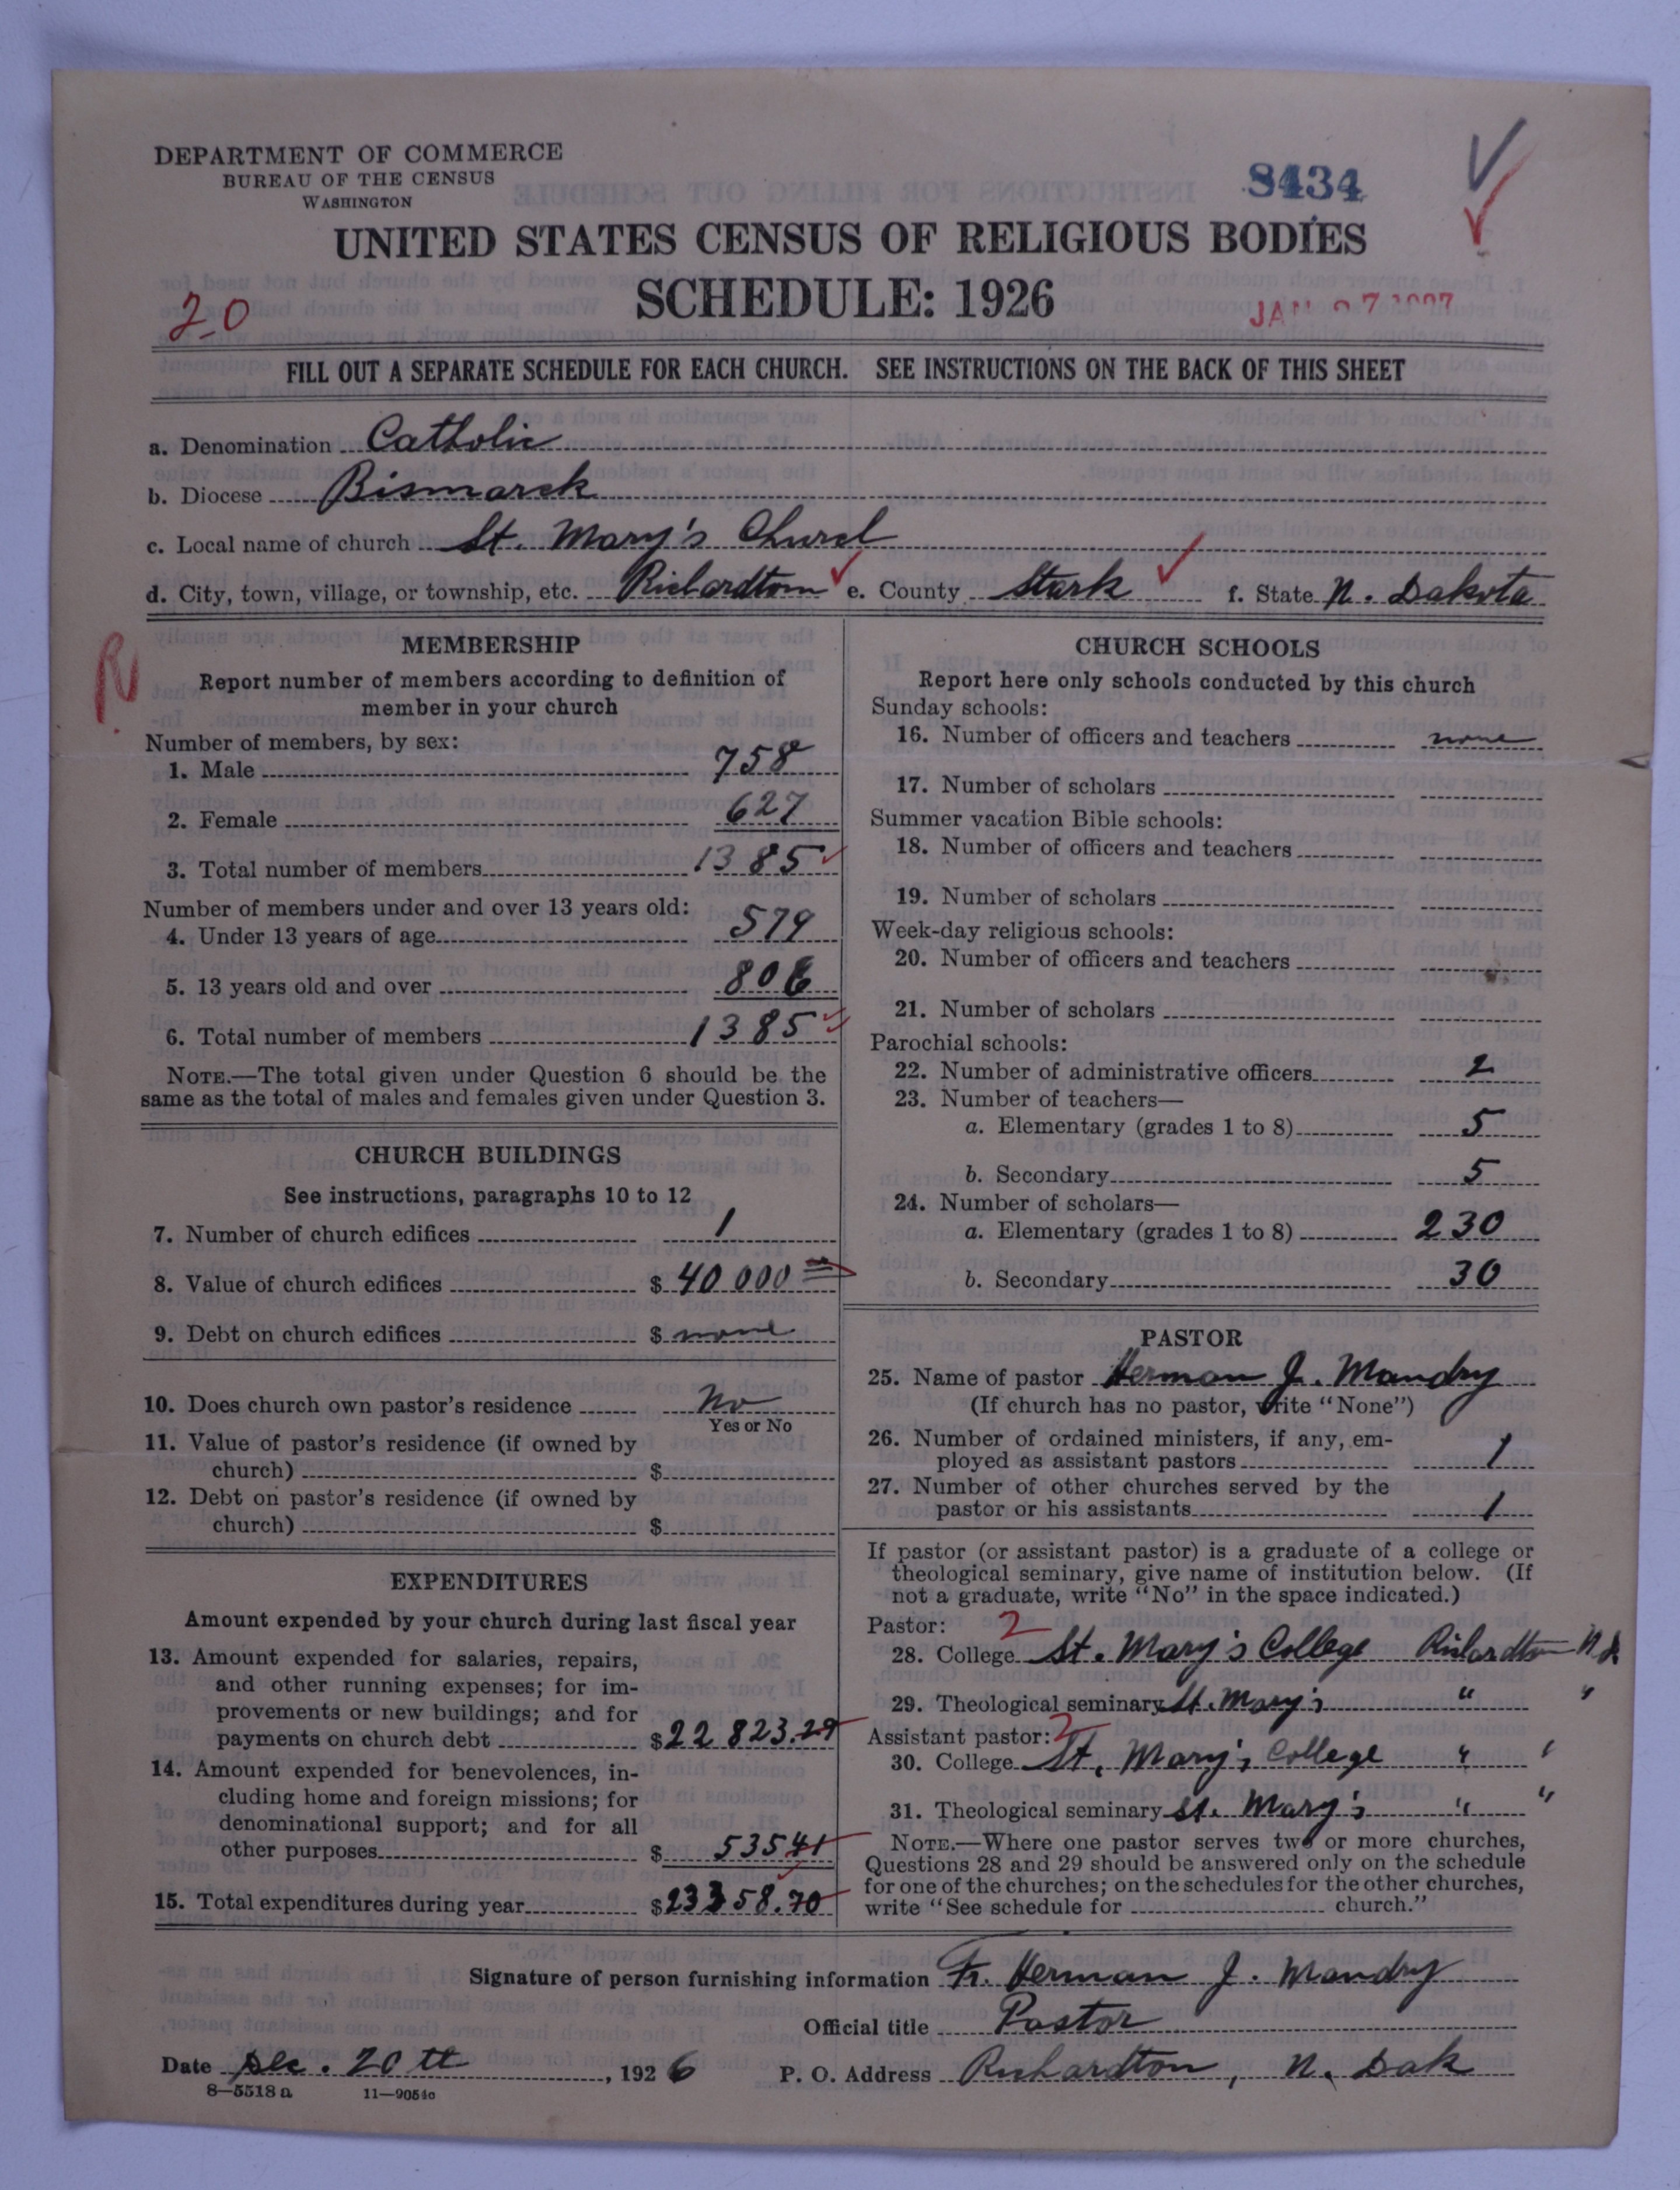 DEPARTMENT OF COMMERCE
BUREAU OF THE CENSUS
WASHINGTON
8434
UNITED STATES CENSUS OF RELIGIOUS BODIES
SCHEDULE: 1926
20
JAN 27
FILL OUT A SEPARATE SCHEDULE FOR EACH CHURCH. SEE INSTRUCTIONS ON THE BACK OF THIS SHEET
a. Denomination Catholic
b. Diocese Bismarck
c. Local name of church St. Mary's Church
d. City, town, village, or township, etc. Richardton e. County Stark f. State N. Dakota
R
MEMBERSHIP
Report number of members according to definition of
member in your church
Number of members, by sex:
1. Male 758
2. Female 627
3. Total number of members 1385
Number of members under and over 13 years old:
4. Under 13 years of age 579
5. 13 years old and over 806
6. Total number of members 1385
NOTE.—The total given under Question 6 should be the
same as the total of males and females given under Question 3.
CHURCH BUILDINGS
See instructions, paragraphs 10 to 12
7. Number of church edifices 1
8. Value of church edifices $ 40 000
9. Debt on church edifices $ none
10. Does church own pastor's residence No
Yes or No
11. Value of pastor's residence (if owned by
church) $
12. Debt on pastor's residence (if owned by
church) $
EXPENDITURES
Amount expended by your church during last fiscal year
13. Amount expended for salaries, repairs,
and other running expenses; for im-
provements or new buildings; and for
payments on church debt $22 823.29
14. Amount expended for benevolences, in-
cluding home and foreign missions; for
denominational support; and for all
other purposes $ 535 41
15. Total expenditures during year $23358.70
CHURCH SCHOOLS
Report here only schools conducted by this church
Sunday schools:
16. Number of officers and teachers none
17. Number of scholars
Summer vacation Bible schools:
18. Number of officers and teachers
19. Number of scholars
Week-day religious schools:
20. Number of officers and teachers
21. Number of scholars
Parochial schools:
22. Number of administrative officers 2
23. Number of teachers—
a. Elementary (grades 1 to 8) 5
b. Secondary 5
24. Number of scholars—
a. Elementary (grades 1 to 8) 230
b. Secondary 30
PASTOR
25. Name of pastor Herman J. Mandry
(If church has no pastor, write "None")
26. Number of ordained ministers, if any, em-
ployed as assistant pastors 1
27. Number of other churches served by the
pastor or his assistants 1
If pastor (or assistant pastor) is a graduate of a college or
theological seminary, give name of institution below. (If
not a graduate, write "No" in the space indicated.)
Pastor: 2
28. College St. Mary's College Richardton N.D.
29. Theological seminary St. Mary's " "
Assistant pastor: 2
30. College St. Mary's College " "
31. Theological seminary St. Mary's " "
NOTE.—Where one pastor serves two or more churches,
Questions 28 and 29 should be answered only on the schedule
for one of the churches; on the schedules for the other churches,
write "See schedule for church."
Signature of person furnishing information Fr. Herman J. Mandry
Official title Pastor
Date Dec. 20th, 1926 P. O. Address Richardton, N. Dak
8—5518 a 11—9054c